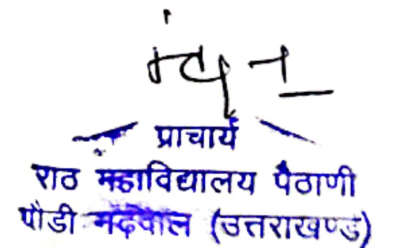 प्राचार्य
राठ महाविद्यालय पैठाणी
पौडी गढ़वाल (उत्तराखण्ड)